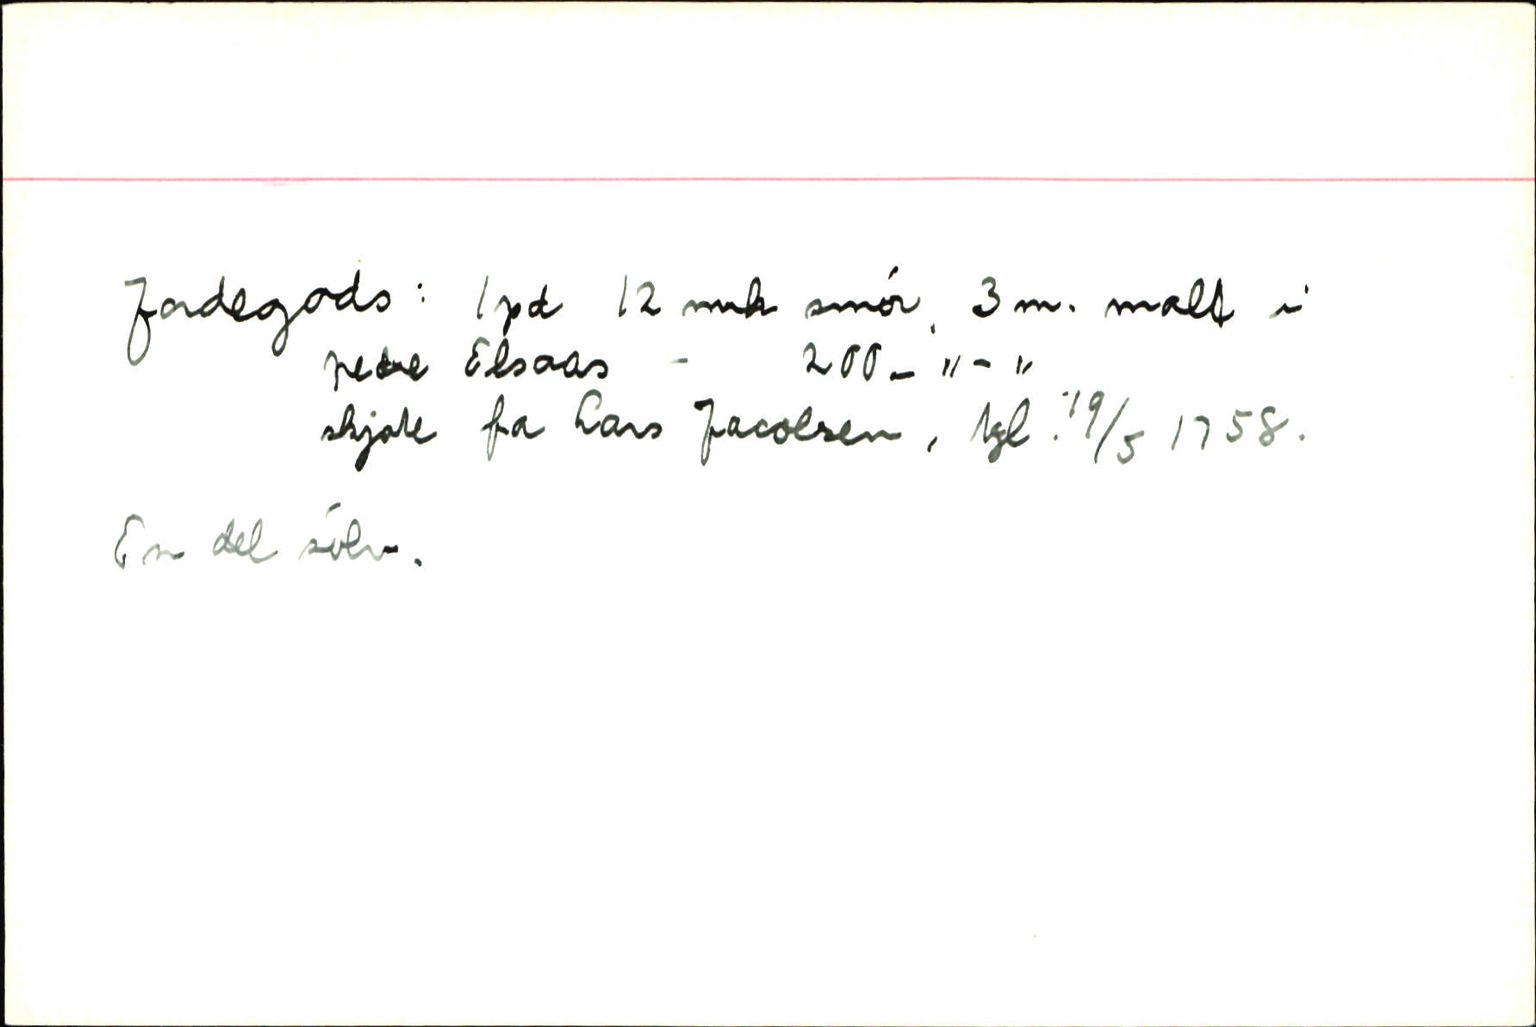 Jordegods: 1 pd 12 mrk smór, 3 m. malt i
nedre Elsaas - 200 - " - "
skjøte fra Lars Jacobsen, tgl. 19/5 1758.
En del sölv.